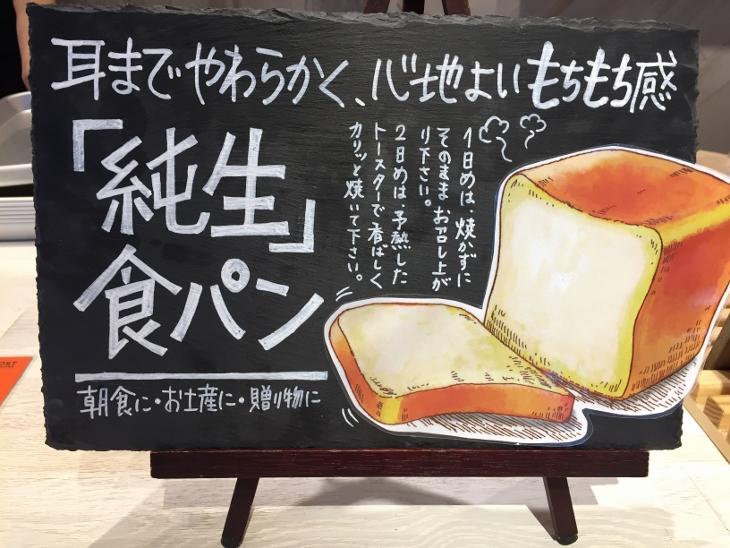 耳までやわらかく、心地よいもちもち感
「純生」
食パン
1日めは、焼かずに
そのままお召し上が
り下さい。
2日めは、予熱した
トースターで香ばしく
カリッと焼いて下さい。
朝食に・お土産に・贈り物に